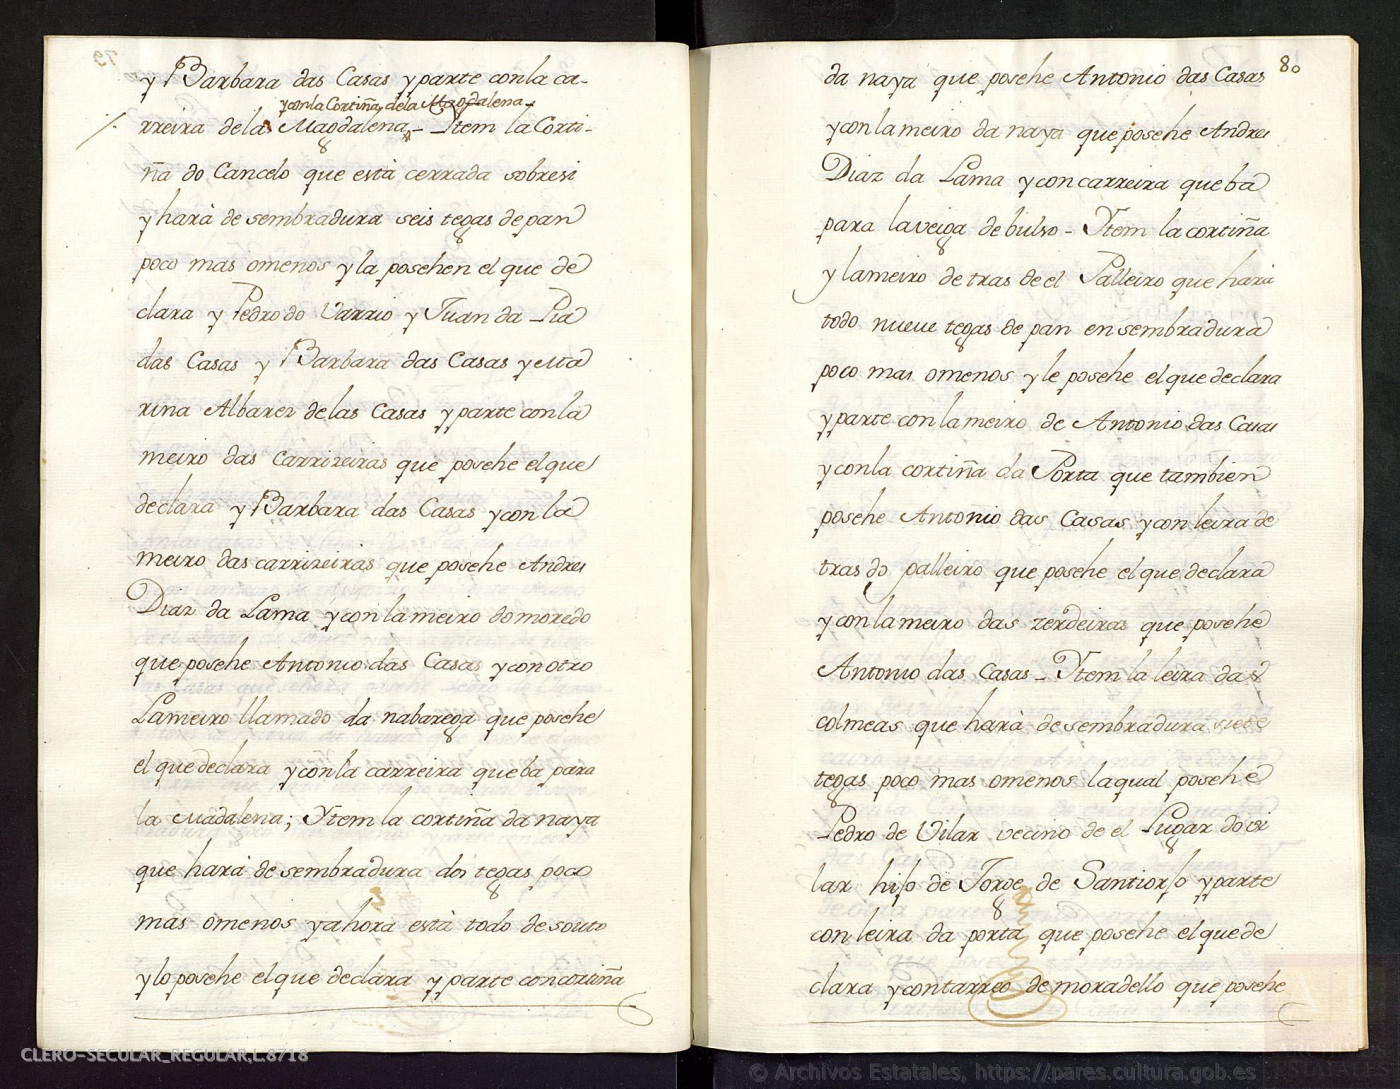 79
y Barbara das Casas y parte con la ca-
y con la Cortiña de la Magdalena
rreira de la Magdalena - Ytem la Corti-
ña do Cancelo que està cerrada sobre si
y harà de sembradura seis tegas de pan
poco mas omenos y la posehen el que de
clara y Pedro do Varrio y Juan da Pia
das Casas y Barbara das Casas y Cata
rina Albarez de las Casas y parte con la
meiro das carrizeiras que posehe el que
declara y Barbara das Casas y con la
meiro das carrizeiras que posehe Andres
Diaz da Lama y con lameiro do moredo
que posehe Antonio das Casas y con otro
Lameiro llamado da nabarega que posehe
el que declara y con la carreira que ba para
la Madalena; Ytem la cortiña da naya
que harà de sembradura dos tegas poco
mas omenos y ahora està todo de souto
y lo posehe el que declara y parte con cortiña
80
da naya que posehe Antonio das Casas
y con lameiro da naya que posehe Andres
Diaz da Lama y con carreira que ba
para la veiga de bulso - Ytem la cortiña
y lameiro de tras de el Palleiro que harà
todo nueve tegas de pan en sembradura
poco mas omenos y le posehe el que declara
y parte con lameiro de Antonio das Casas
y con la cortiña da Porta que tambien
posehe Antonio das Casas y con leira de
tras do palleiro que posehe el que declara
y con lameiro das zerdeiras que posehe
Antonio das Casas - Ytem la leira das
colmeas que harà de sembradura siete
tegas poco mas omenos la qual posehe
Pedro de Vilar vecino de el Lugar do vi
lar hijo de Jorge de Santiorjo y parte
con leira da porta que posehe el que de
clara y con tarreo de moradello que posehe
CLERO-SECULAR_REGULAR,L.8718
© Archivos Estatales, https://pares.cultura.gob.es